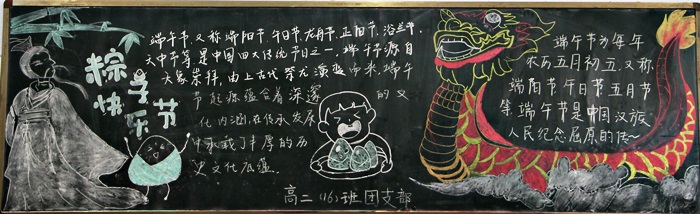 粽子节
快乐
端午节,又称端阳节、午日节、龙舟节、正阳节、浴兰节、
天中节等,是中国四大传统节日之一,端午节源自
天象崇拜,由上古代祭龙演变而来,端午
节起源蕴含着深邃的文
化内涵,在传承发展
中承载了丰厚的历
史文化底蕴。
端午节为每年
农历五月初五,又称
端阳节、午日节、五月节
等,端午节是中国汉族
人民纪念屈原的传~
高二(16)班团支部